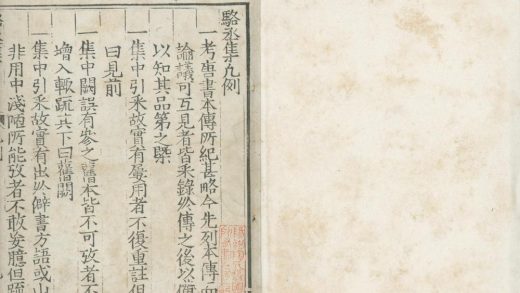 駱丞集凡例
一考唐書本傳所紀甚略今先列本傳而
論議可互見者皆采錄以傳之後以備
以知其品第之槩
一集中引采故實有屡用者不復重註但
曰見前
一集中闕誤有參之諸本皆不可攷者不
増入輒疏其下曰舊闕
一集中引采故實有出以僻書方語或山
非用中淺陋所能攷者不敢妄臆但疏